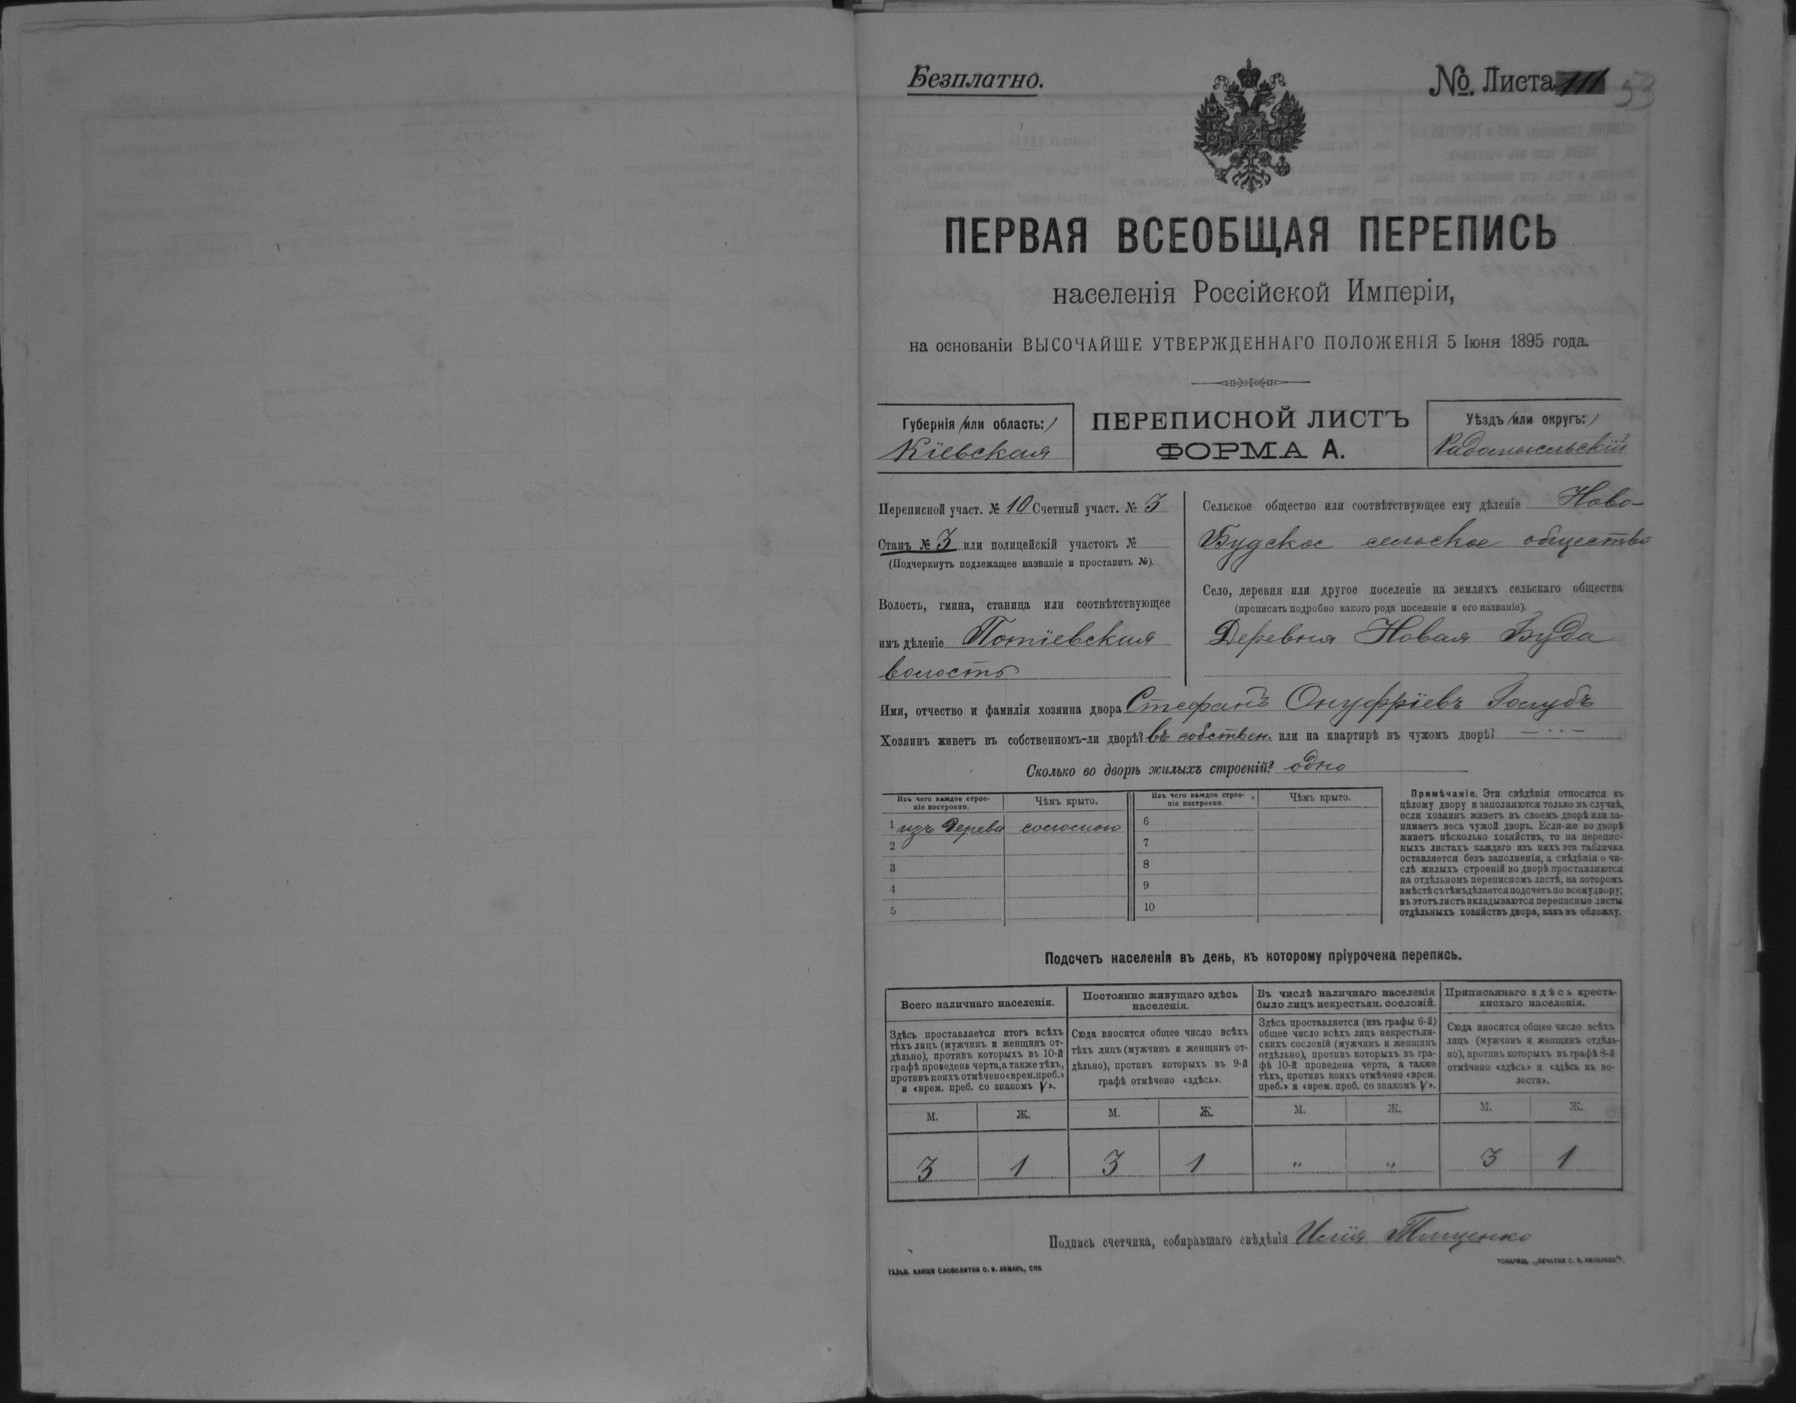 Безплатно.
№. Листа 53
ПЕРВАЯ ВСЕОБЩАЯ ПЕРЕПИСЬ
населенія Россійской Имперіи,
на основаніи ВЫСОЧАЙШЕ УТВЕРЖДЕННАГО ПОЛОЖЕНІЯ 5 Іюня 1895 года.
Губернія /или область:/
Кіевская
ПЕРЕПИСНОЙ ЛИСТЪ
ФОРМА А.
Уѣздъ /или округъ:/
Радомысльскій
Переписной участ. № 10 Счетный участ. № 3
Станъ № 3 или полицейскій участокъ №
(Подчеркнуть подлежащее названіе и проставить №).
Волость, гмина, станица или соотвѣтствующее
имъ дѣленіе Потіевская
волость
Сельское общество или соотвѣтствующее ему дѣленіе Ново-
Будское сельское общество
Село, деревня или другое поселеніе на земляхъ сельскаго общества
(прописать подробно какого рода поселеніе и его названіе).
Деревня Новая Буда
Имя, отчество и фамилія хозяина двора Стефанъ Онуфріевъ Голубъ
Хозяинъ живетъ въ собственномъ-ли дворѣ? въ собствен. или на квартирѣ въ чужомъ дворѣ? — ... —
Сколько во дворѣ жилыхъ строеній? одно
Изъ чего каждое строе-
ніе построено.
Чѣмъ крыто.
Изъ чего каждое строе-
ніе построено.
Чѣмъ крыто.
1 изъ дерева соломою
2
3
4
5
6
7
8
9
10
Примѣчаніе. Эти свѣдѣнія относятся къ
цѣлому двору и заполняются только въ случаѣ,
если хозяинъ живетъ въ своемъ дворѣ или за-
нимаетъ весь чужой дворъ. Если-же во дворѣ
живетъ нѣсколько хозяйствъ, то на перепис-
ныхъ листахъ каждаго изъ нихъ эта табличка
оставляется безъ заполненія, а свѣдѣнія о чи-
слѣ жилыхъ строеній во дворѣ проставляются
на отдѣльномъ переписномъ листѣ, на которомъ
вмѣстѣ съ тѣмъ дѣлается подсчетъ по всему двору;
въ этотъ листъ вкладываются переписные листы
отдѣльныхъ хозяйствъ двора, какъ въ обложку.
Подсчетъ населенія въ день, къ которому пріурочена перепись.
Всего наличнаго населенія.
Здѣсь проставляется итогъ всѣхъ
тѣхъ лицъ (мужчинъ и женщинъ от-
дѣльно), противъ которыхъ въ 10-й
графѣ проведена черта, а также тѣхъ,
противъ коихъ отмѣчено «врем. преб.»
и «врем. преб. со знакомъ V».
Постоянно живущаго здѣсь
населенія.
Сюда вносится общее число всѣхъ
тѣхъ лицъ (мужчинъ и женщинъ от-
дѣльно), противъ которыхъ въ 9-й
графѣ отмѣчено «здѣсь».
Въ числѣ наличнаго населенія
было лицъ некрестьян. сословій.
Здѣсь проставляется (изъ графы 6-й)
общее число всѣхъ лицъ некрестьян-
скихъ сословій (мужчинъ и женщинъ
отдѣльно), противъ которыхъ въ гра-
фѣ 10-й проведена черта, а также
тѣхъ, противъ коихъ отмѣчено «врем.
преб.» и «врем. преб. со знакомъ V».
Приписаннаго здѣсь кресть-
янскаго населенія.
Сюда вносится общее число всѣхъ
лицъ (мужчинъ и женщинъ отдѣль-
но), противъ которыхъ въ графѣ 8-й
отмѣчено «здѣсь» и «здѣсь къ во-
лости».
М. Ж. М. Ж. М. Ж. М. Ж.
3 1 3 1 " " 3 1
Подпись счетчика, собиравшаго свѣдѣнія Илія Тищенко
ГАЛЬВ. КЛИШЕ СЛОВОЛИТНИ О. И. ЛЕМАНЪ, СПБ
ТОВАРИЩ. „ПЕЧАТНИ С. П. ЯКОВЛЕВА".